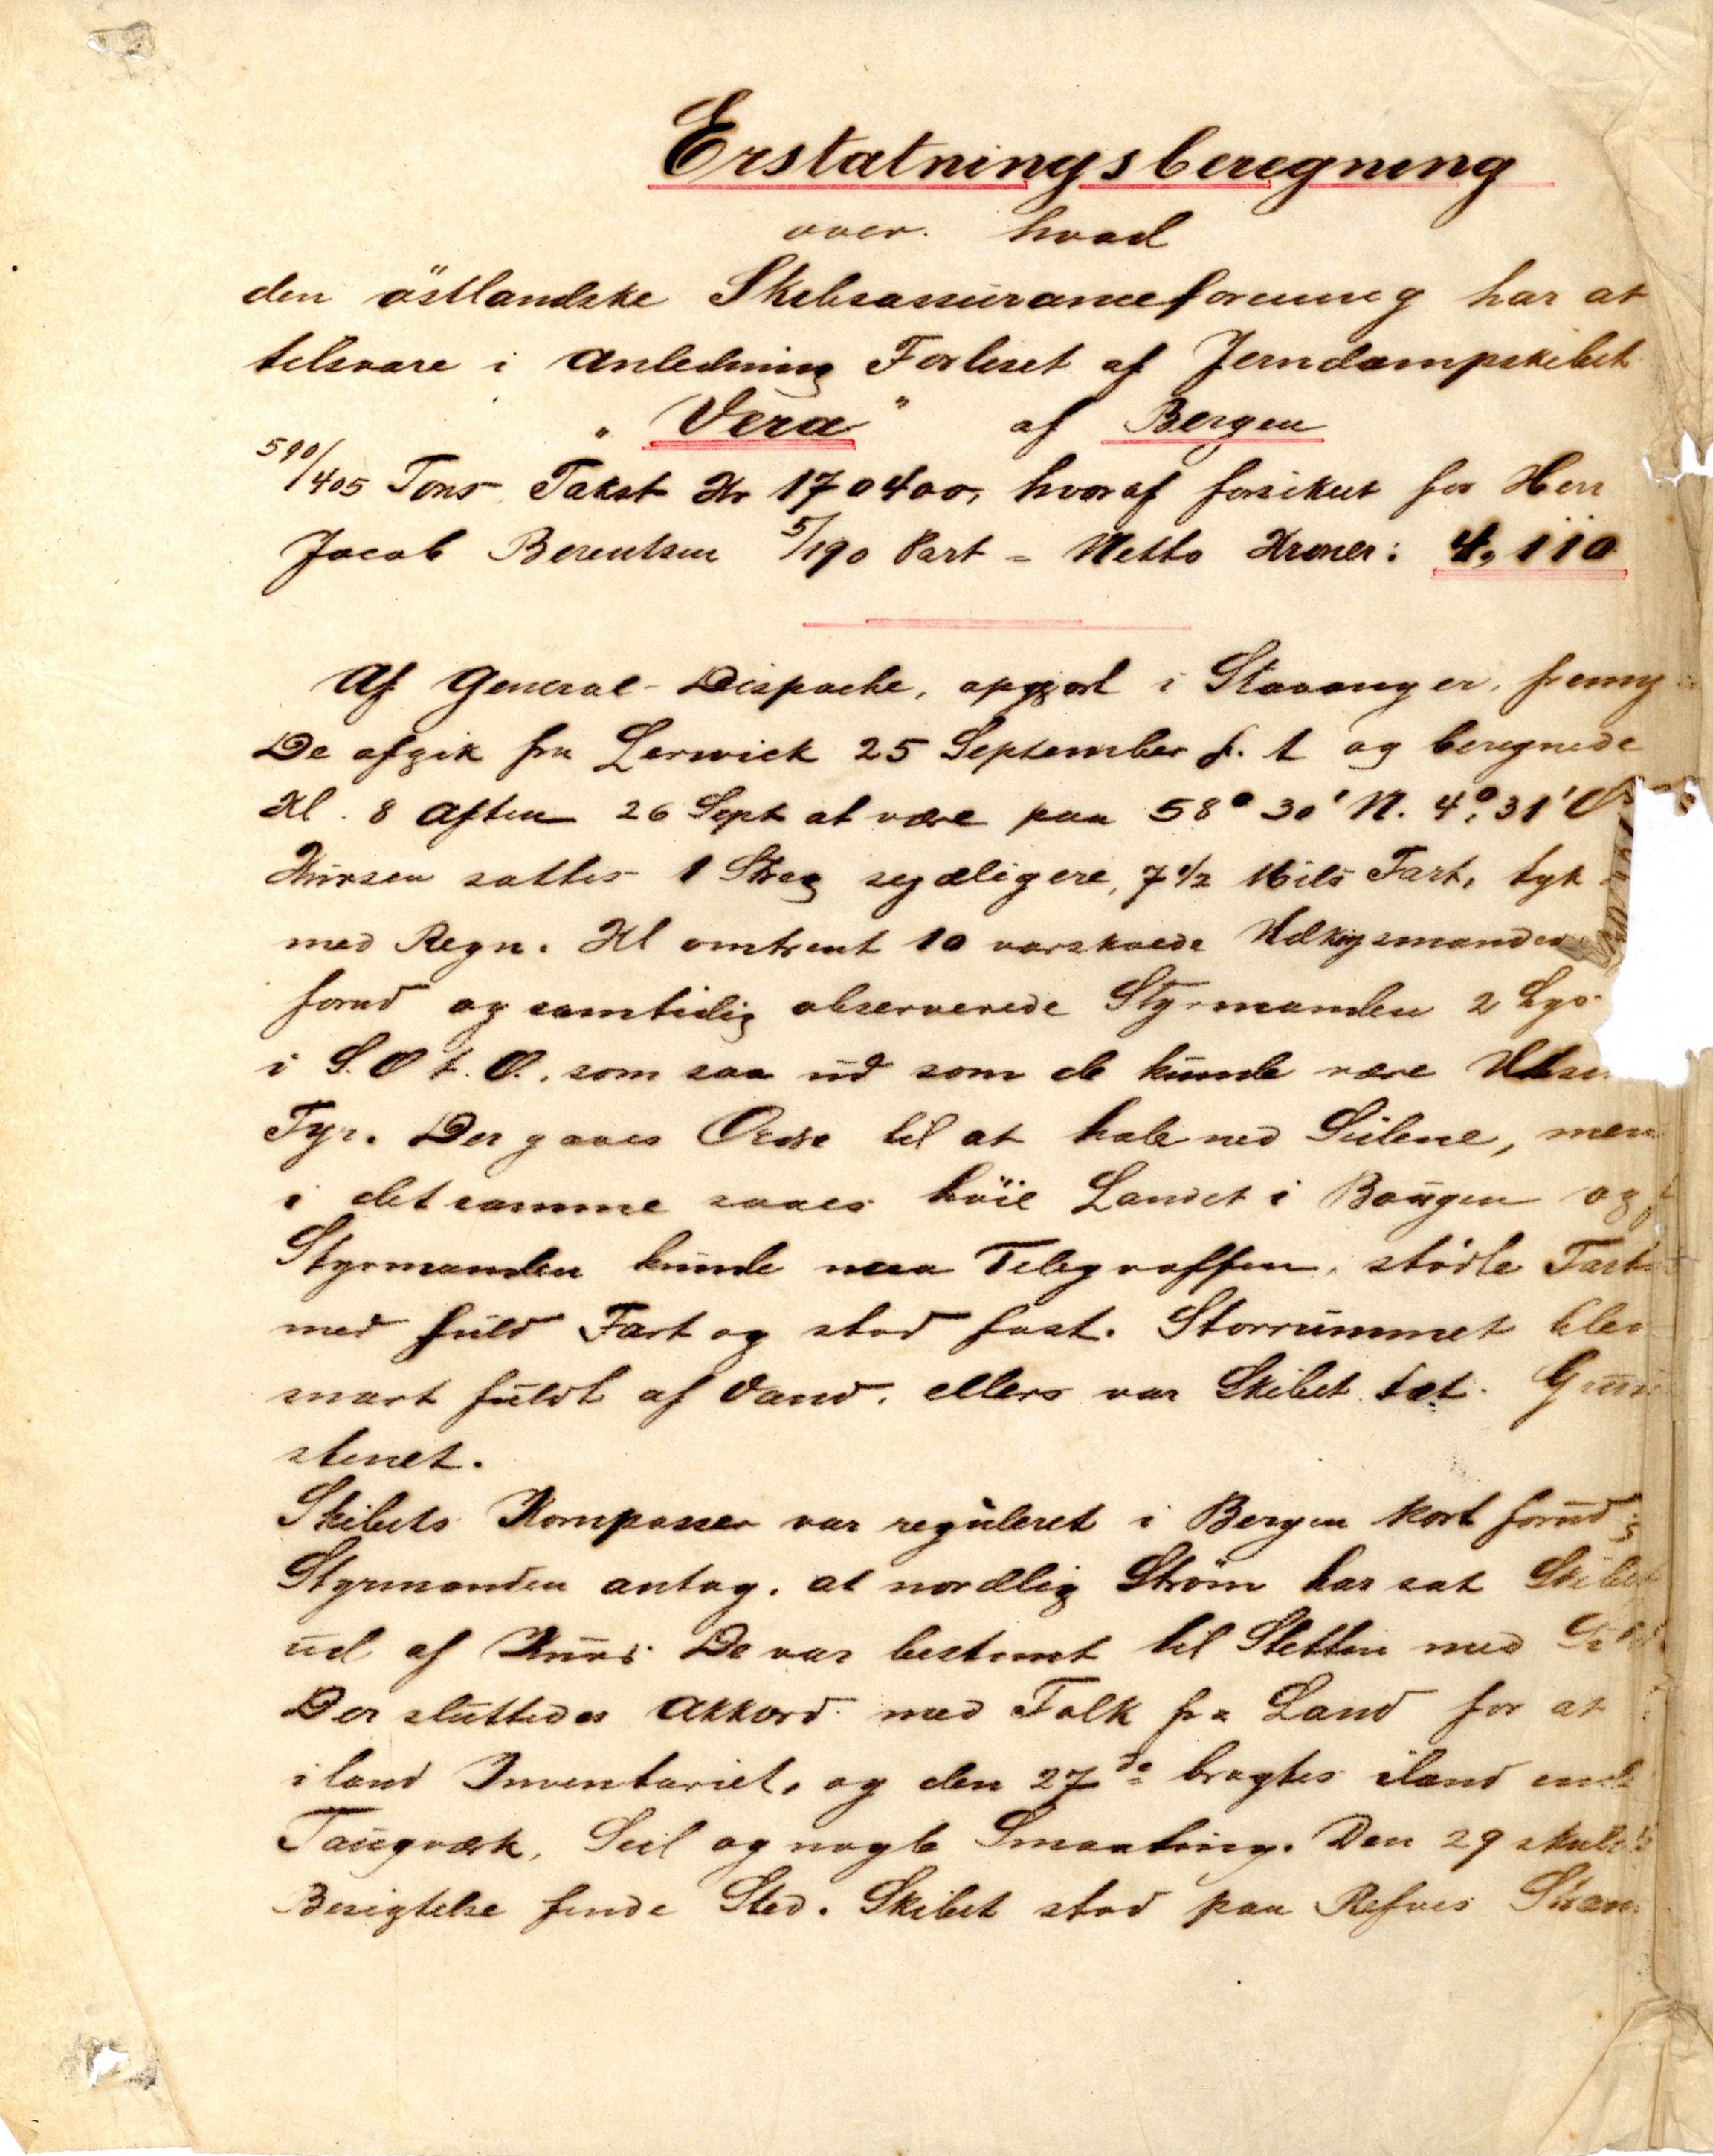 Erstatningsberegning
over hvad
den östlandske Skibsassuranceforening har at
tilsvare i Anledning Forliset af Jerndampskibet
" Vera " af Bergen
590/405 Tons Takst Kr 170400, hvoraf forsikret for Herr
Jacob Berentsen 5/190 Part = Netto Kroner: 4,110
Af General-Dispache, opgjort i Stavanger, fremg
De afgik fra Lerwick 25 September f. A og beregnede
Kl. 8 Aften 26 Sept at være paa 58° 30' N. 4° 31' O
Kursen sattes 1 Streg sydligere, 7 1/2 Mils Fart, tyk
med Regn. Kl omtrent 10 varskoede Udkigsmanden
forud og samtidig observerede Styrmanden 2 Lys
i S.O t. O., som saa ud som de kunde være
Fyr. Der gaves Ordre til at hale ned Seilene, men
i det samme saaes höie Landet i Bougen og
Styrmanden kunde naa Telegraffen, stödte
med fuld Fart og stod fast. Storrummet blev
snart fuldt af Vand, ellers var Skibet tæt.
stenet.
Skibets Kompasser var reguleret i Bergen kort forud
Styrmanden antog, at nordlig Ström har sat Skibet
ud af Kurs. De var bestemt til Stettin med Sild
Der sluttedes Akkord med Folk fra Land for at
iland Inventariet, og den 27de bragtes iland
Taugværk, Seil og nogle Smaating. Den 29 skulde
Besigtelse finde Sted. Skibet stod paa Refnes